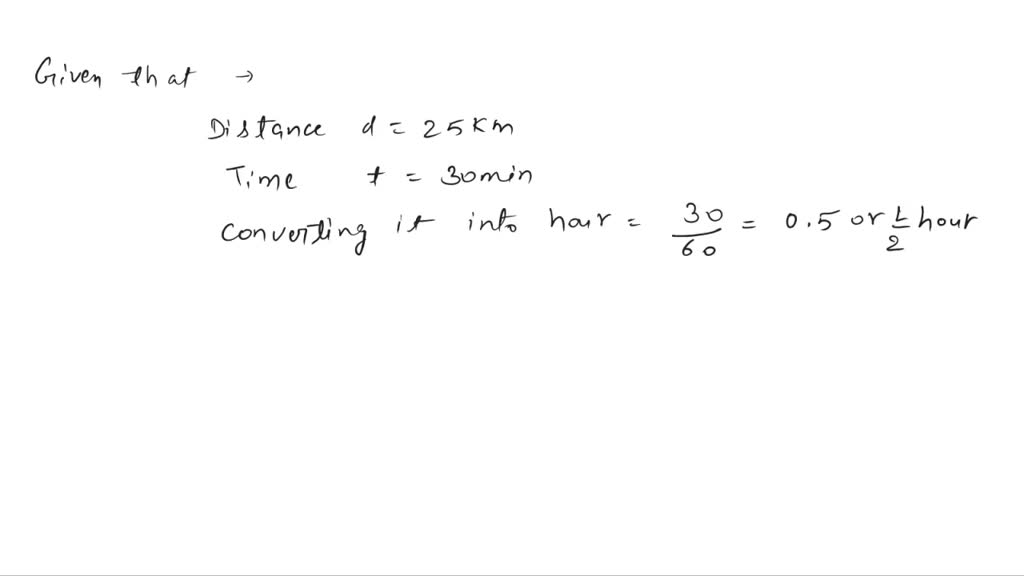 Given that →
Distance d = 25 Km
Time t = 30min
Converting it into hour = 30/60 = 0.5 or 1/2 hour